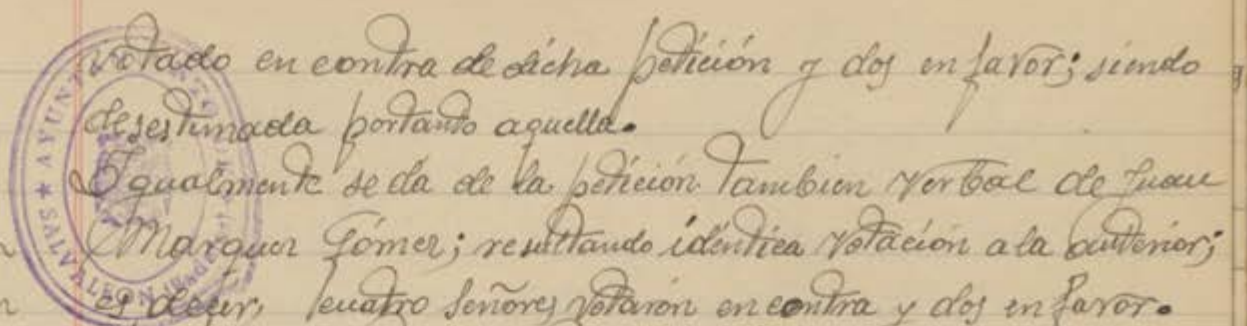 votado en contra de dicha petición y dos en favor; siendo
desestimada portanto aquella.
Igualmente se da de la petición tambien verbal de Juan
Marquez Gómez; resultando idéntica votación a la anterior;
es decir, cuatro señores votaron en contra y dos en favor.
AYUNT
SALVALEON